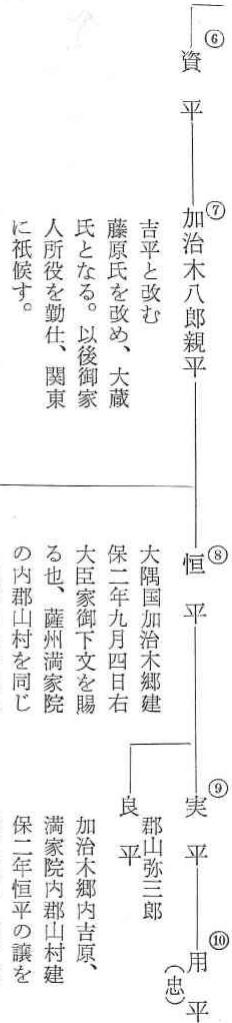 ⑥
資平
⑦
加治木八郎親平
吉平と改む
藤原氏を改め、大蔵
氏となる。以後御家
人所役を勤仕、関東
に祇候す。
⑧
恒平
大隅国加治木郷建
保二年九月四日右
大臣家御下文を賜
る也、薩州満家院
の内郡山村を同じ
⑨
実平
⑩
用平
(忠)
良平
郡山弥三郎
加治木郷内吉原、
満家院内郡山村建
保二年恒平の譲を